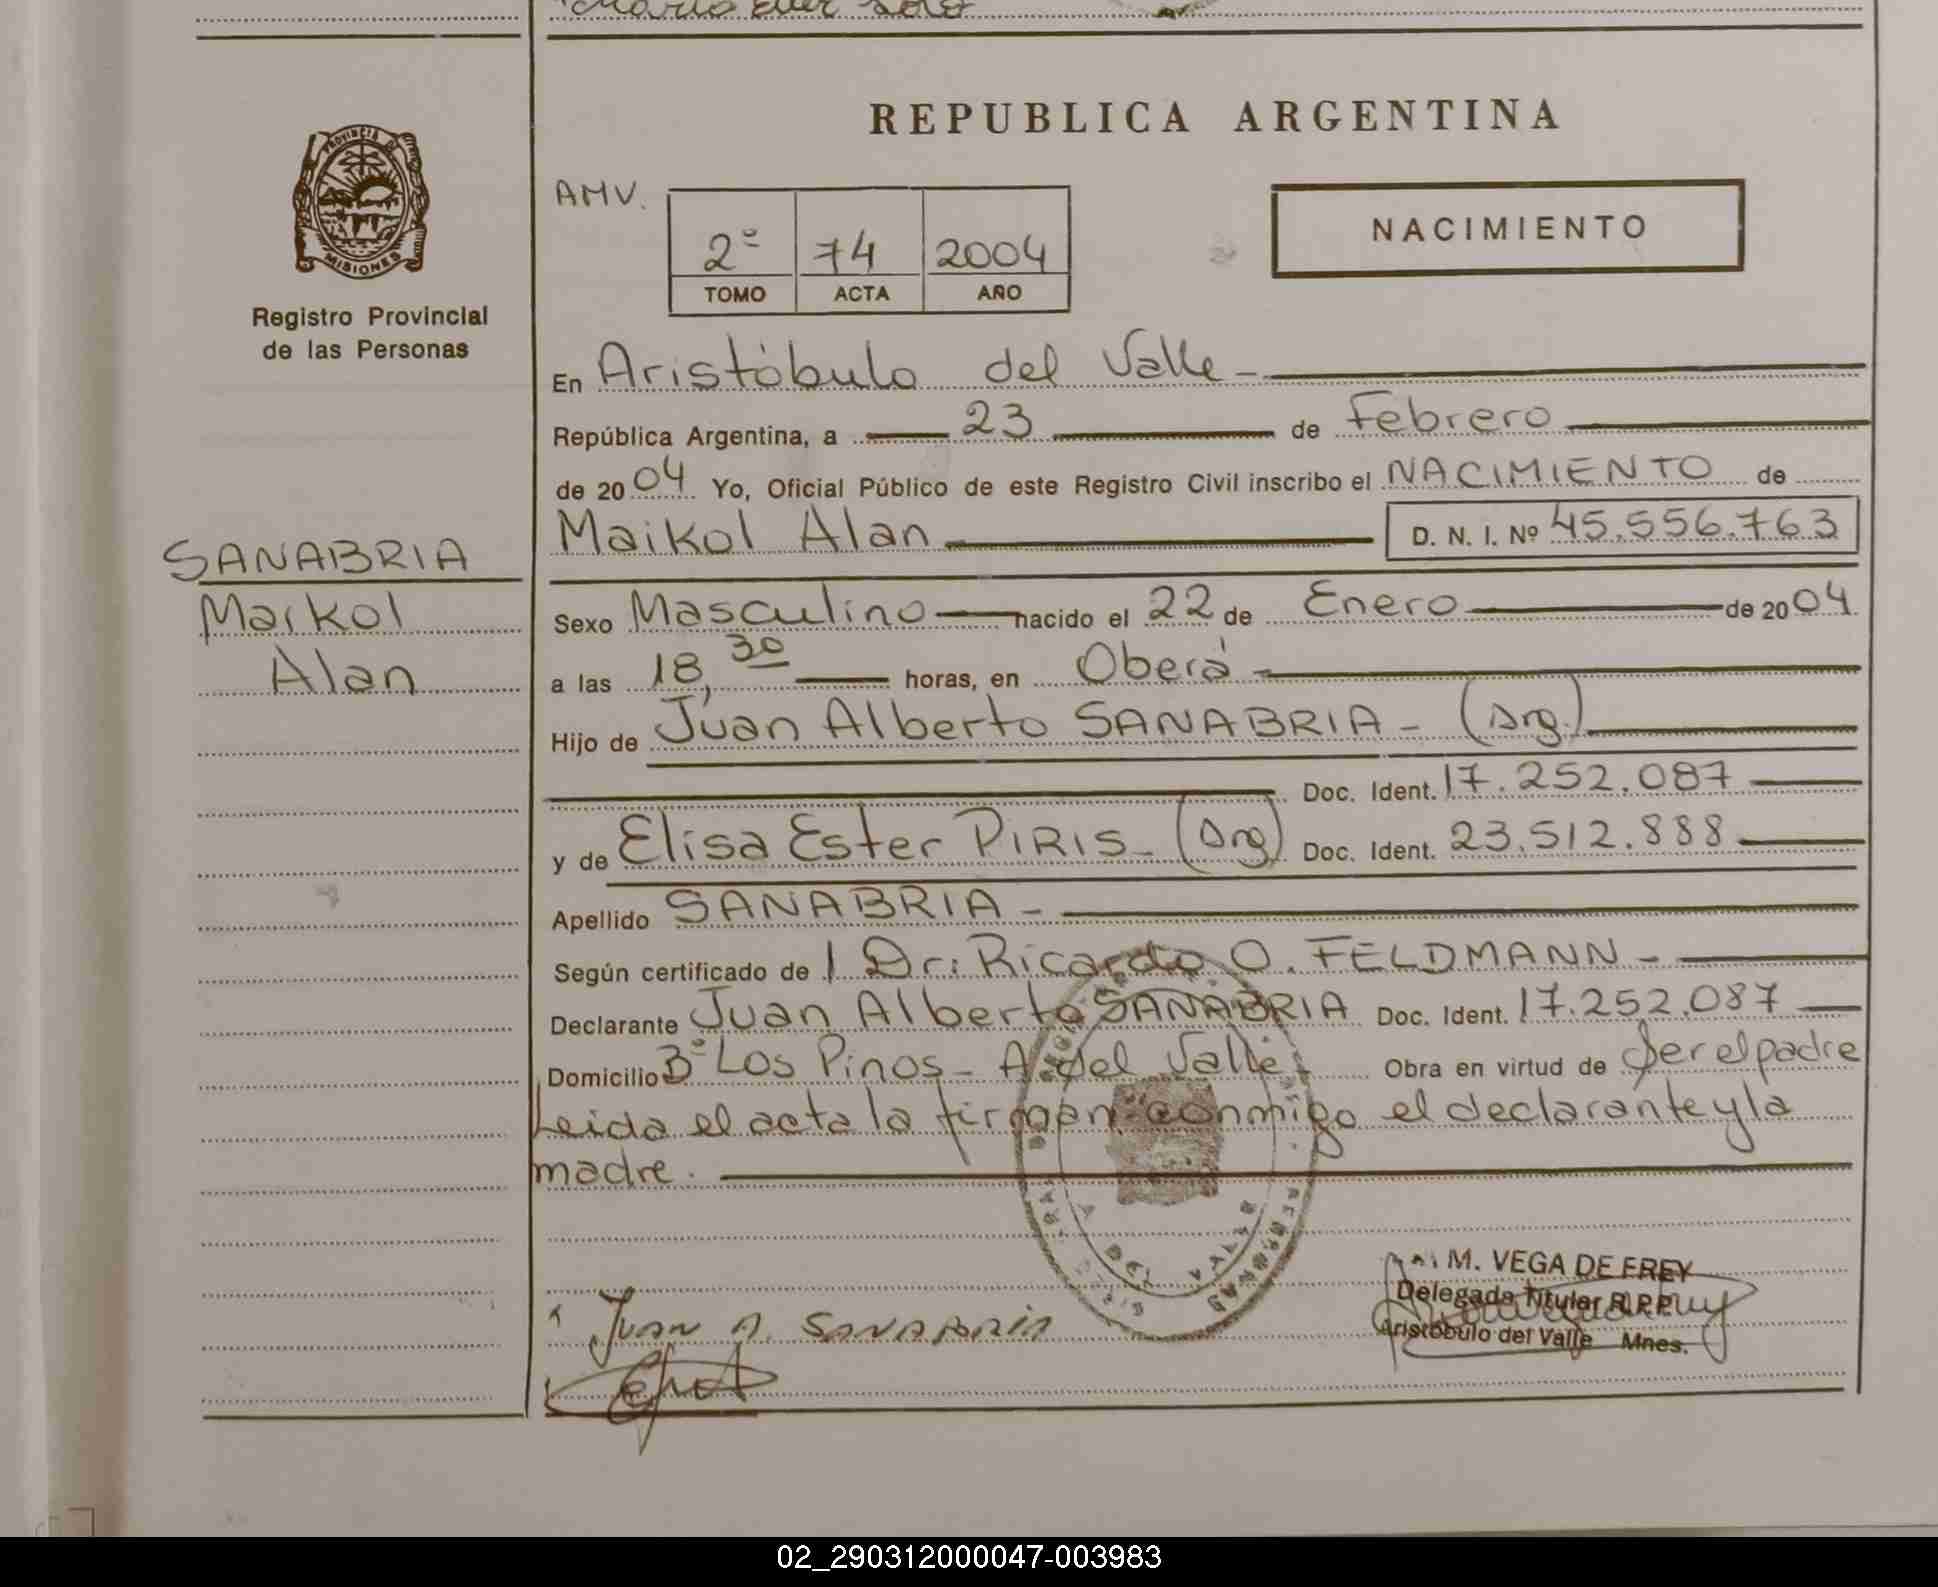 REPUBLICA ARGENTINA
PROVINCIA DE
MISIONES
Registro Provincial
de las Personas
AMV.
2º 74 2004
TOMO ACTA AÑO
NACIMIENTO
En Aristóbulo del Valle -
República Argentina, a 23 de Febrero
de 2004 Yo, Oficial Público de este Registro Civil inscribo el NACIMIENTO de
Maikol Alan D. N. I. Nº 45.556.763
SANABRIA
Maikol
Alan
Sexo Masculino nacido el 22 de Enero de 2004
a las 18,30 horas, en Oberá
Hijo de Juan Alberto SANABRIA - (Arg.)
Doc. Ident. 17.252.087
y de Elisa Ester PIRIS - (Arg) Doc. Ident. 23.512.888
Apellido SANABRIA -
Según certificado de l Dr: Ricardo O. FELDMANN -
Declarante Juan Alberto SANABRIA Doc. Ident. 17.252.087
Domicilio Bº Los Pinos - A. del Valle Obra en virtud de ser el padre
Leida el acta la firman conmigo el declarante y la
madre.
M. VEGA DE FREY
Delegada Titular R.P.P.
Aristóbulo del Valle Mnes.
JUAN A. SANABRIA
02_290312000047-003983